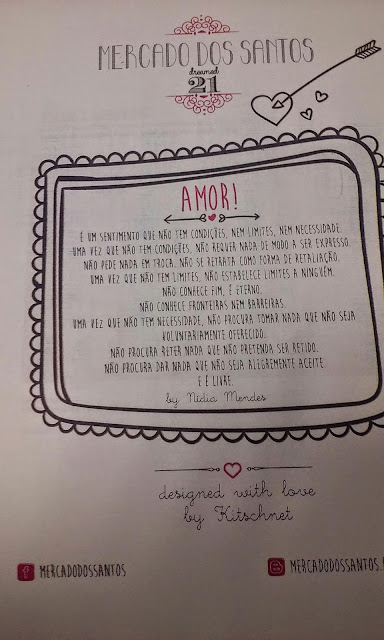 MERCADO DOS SANTOS
dreamed
21
AMOR!
É UM SENTIMENTO QUE NÃO TEM CONDIÇÕES, NEM LIMITES, NEM NECESSIDADE.
UMA VEZ QUE NÃO TEM CONDIÇÕES, NÃO REQUER NADA DE MODO A SER EXPRESSO.
NÃO PEDE NADA EM TROCA, NÃO SE RETRATA COMO FORMA DE RETALIAÇÃO.
UMA VEZ QUE NÃO TEM LIMITES, NÃO ESTABELECE LIMITES A NINGUÉM.
NÃO CONHECE FIM, É ETERNO.
NÃO CONHECE FRONTEIRAS NEM BARREIRAS.
UMA VEZ QUE NÃO TEM NECESSIDADE, NÃO PROCURA TOMAR NADA QUE NÃO SEJA
VOLUNTARIAMENTE OFERECIDO.
NÃO PROCURA RETER NADA QUE NÃO PRETENDA SER RETIDO.
NÃO PROCURA DAR NADA QUE NÃO SEJA ALEGREMENTE ACEITE.
E É LIVRE.
by Nídia Mendes
designed with love
by Kitschnet
f MERCADODOSSANTOS
MERCADODOSSANTOS.